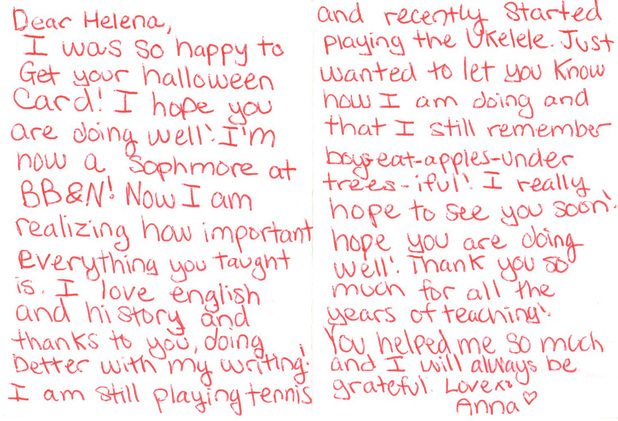 Dear Helena,
I was so happy to
Get your halloween
Card! I hope you
are doing well! I'm
now a Sophmore at
BB&N! Now I am
realizing how important
everything you taught
is. I love english
and history and
thanks to you, doing
better with my writing!
I am still playing tennis
and recently started
playing the Ukelele. Just
wanted to let you know
how I am doing and
that I still remember
boys-eat-apples-under
trees-iful! I really
hope to see you soon!
hope you are doing
well! Thank you so
much for all the
years of teaching!
You helped me so much
and I will always be
grateful. Love
Anna♡